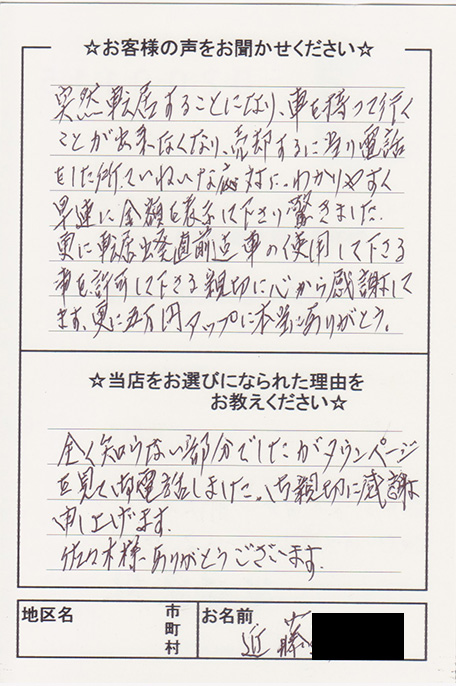 ☆お客様の声をお聞かせください☆
突然転居することになり、車を持って行く
ことが出来なくなり、売却するに当り電話
をした所、ていねいな応対に、わかりやすく
早速に金額を表示して下さり驚きました。
更に転居出発直前迄車の使用して下さる
事を許可して下さる親切に心から感謝して
ます、更に五万円アップに本当にありがとう。
☆当店をお選びになられた理由を
お教えください☆
全く知らない部分でしたがタウンページ
を見てお電話しました。ご親切に感謝
申し上げます。
佐々木様、ありがとうございます。
地区名 市町村 お名前
近藤